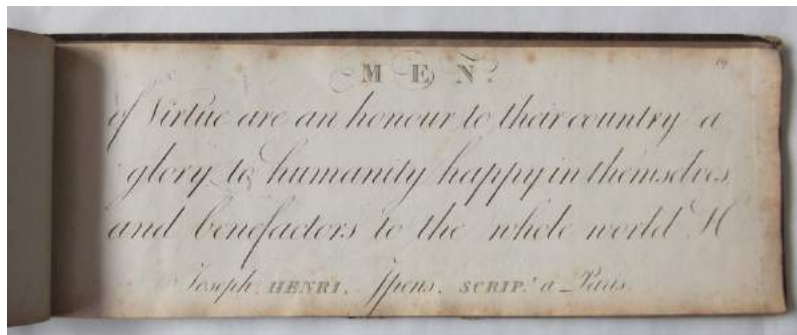 MEN.
19
of Virtue are an honour to their country a
glory to humanity happy in themselves.
and benefactors to the whole world H
Joseph. HENRI. SCRIP.t a Paris.